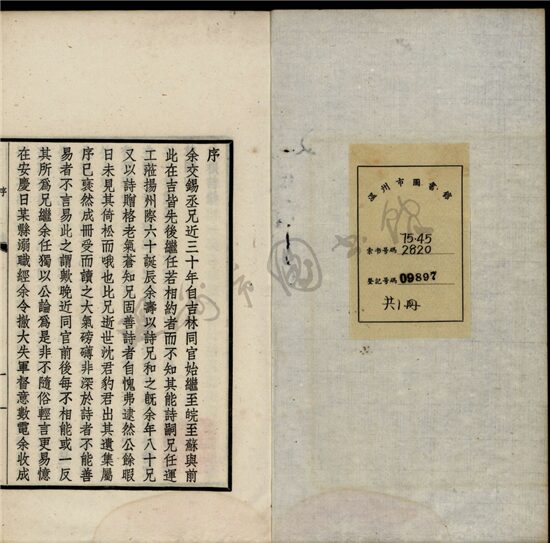 溫州市圖書館
75·45
索书号碼 2820
登记号碼 09897
共1冊
序
余交錫丞兄近三十年自吉林同官始繼至皖至蘇與前
此在吉皆先後繼任若相約者而不知其能詩嗣兄任運
工莅揚州際六十誕辰余壽以詩兄和之旣余年八十兄
又以詩贈格老氣蒼知兄固善詩者自愧弗逮然公餘暇
日未見其倚松而哦也比兄逝世沈君豹君出其遺集屬
序已裒然成冊受而讀之大氣磅礴非深於詩者不能善
易者不言易此之謂歟晚近同官前後每不相能或一反
其所爲兄繼余任獨以公論爲是非不隨俗輕言更易憶
在安慶日某縣溺職經余令撤大失軍督意數電余收成
序
一